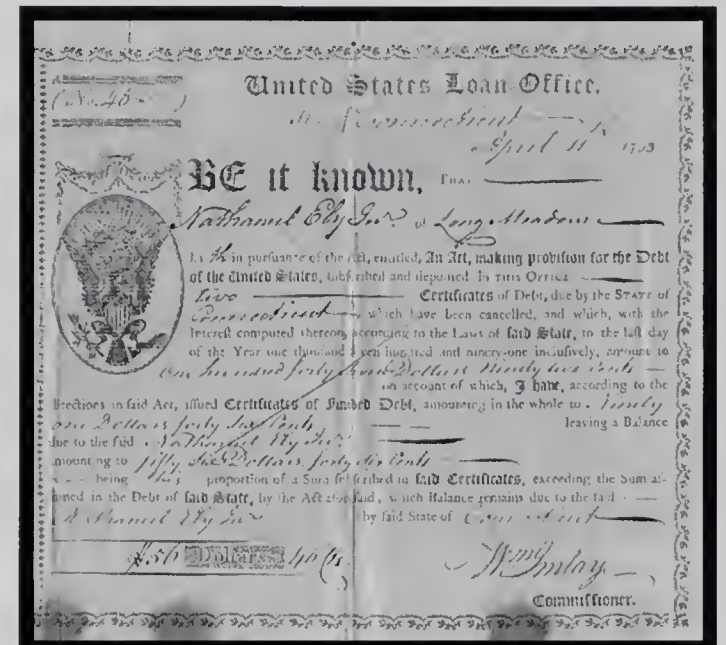 (No. 45)
United States Loan Office.
Connecticut
April 11th 1793
BE it known, THAT
Nathaniel Ely Junr of Long Meadow
in pursuance of the Act, entitled, An Act, making provision for the Debt
of the United States, subscribed and deposited IN THIS OFFICE
Certificates of Debt, due by the STATE of
Connecticut which have been cancelled, and which, with the
Interest computed thereon, according to the Laws of said State, to the last day
of the Year one thousand seven hundred and ninety-one inclusively, amount to
One hundred forty Dollars Ninety two Cents
on account of which, I have, according to the
Directions in said Act, issued Certificates of Funded Debt, amounting in the whole to Ninety
one Dollars forty Six Cents leaving a Balance
due to the said Nathaniel Ely Junr
amounting to fifty Six Dollars forty six Cents
being his proportion of a Sum subscribed in said Certificates, exceeding the Sum as-
sumed in the Debt of said State, by the Act aforesaid, which Balance remains due to the said
Nathaniel Ely Junr by said State of Connecticut
56 Dollars 46 Cts
Wm Imlay
Commissioner.